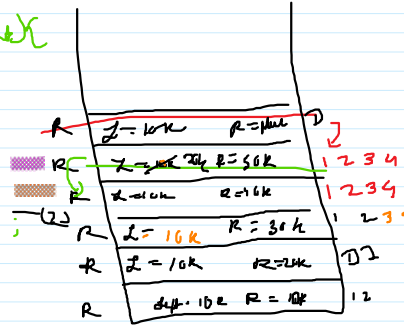 K
R L = 10K R = null D
R L = 20k R = 50K 1 2 3 4
R L = 10K R = 40K 1 2 3 4
(2) R L = 10K R = 30k 1 2 3
R L = 10K R = 20K D I
R dept. 10k R = 10K 1 2